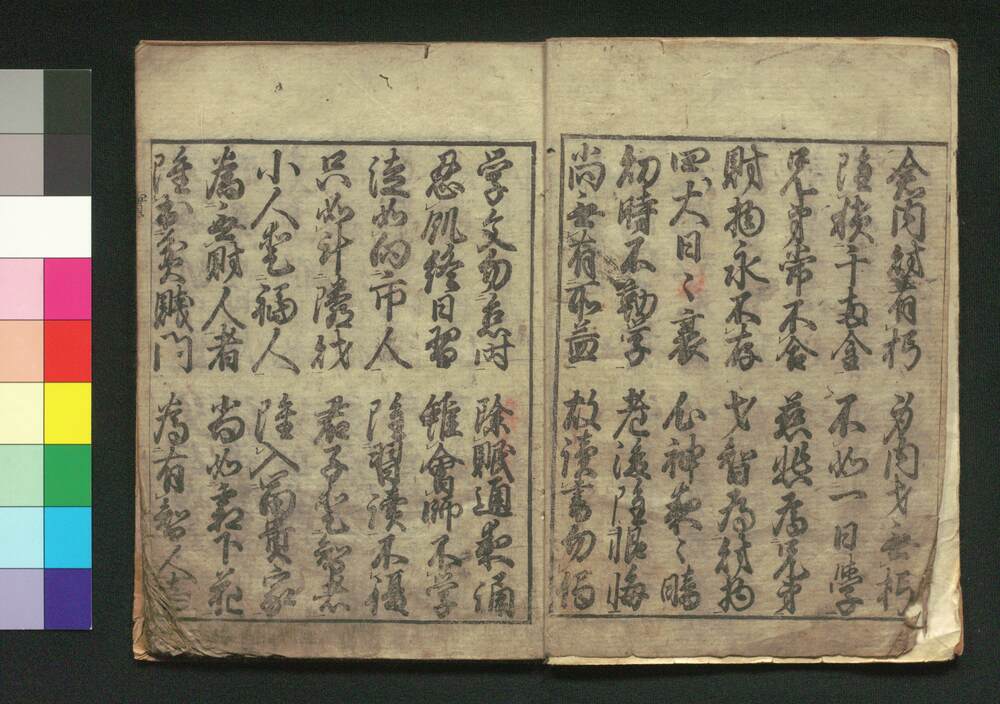 倉内財有朽 身内才無朽
雖積千両金 不如一日学
兄弟常不合 慈悲為兄弟
財物永不存 才智為財物
四大日々衰 心神夜々暗
幼時不勤学 老後雖恨悔
尚無有所益 故読書勿倦
学文勿怠時 除眠通夜誦
忍飢終日習 雖會師不学
徒如向市人 雖習読不復
只如計隣財 君子愛智者
小人愛福人 雖入富貴家
為無財人者 尚如霜下花
雖出貧賤門 為有智人者